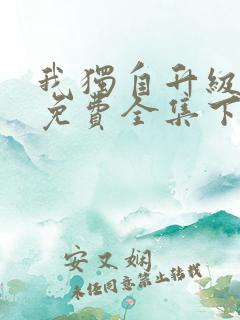 我獨自升級
免費全集下
安又嫻
未经同意禁止转载